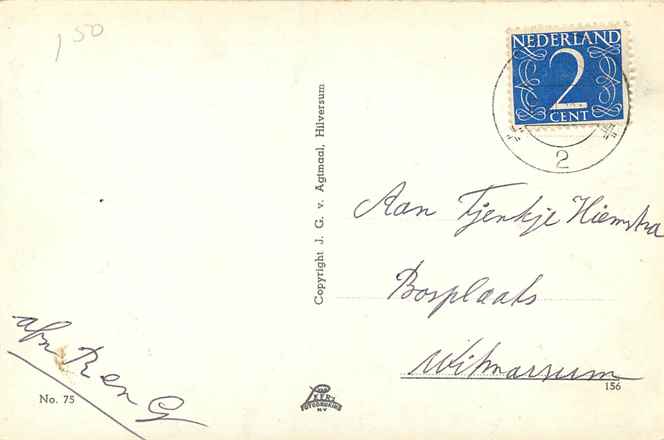 1 50
NEDERLAND
2
CENT
2
Copyright J. G. v. Agtmaal, Hilversum
Aan Tjenkje Hiemstra
Bosplaats
Witmarsum
afz R en G
No. 75
FOTODRUKKERIJ
N.V.
156